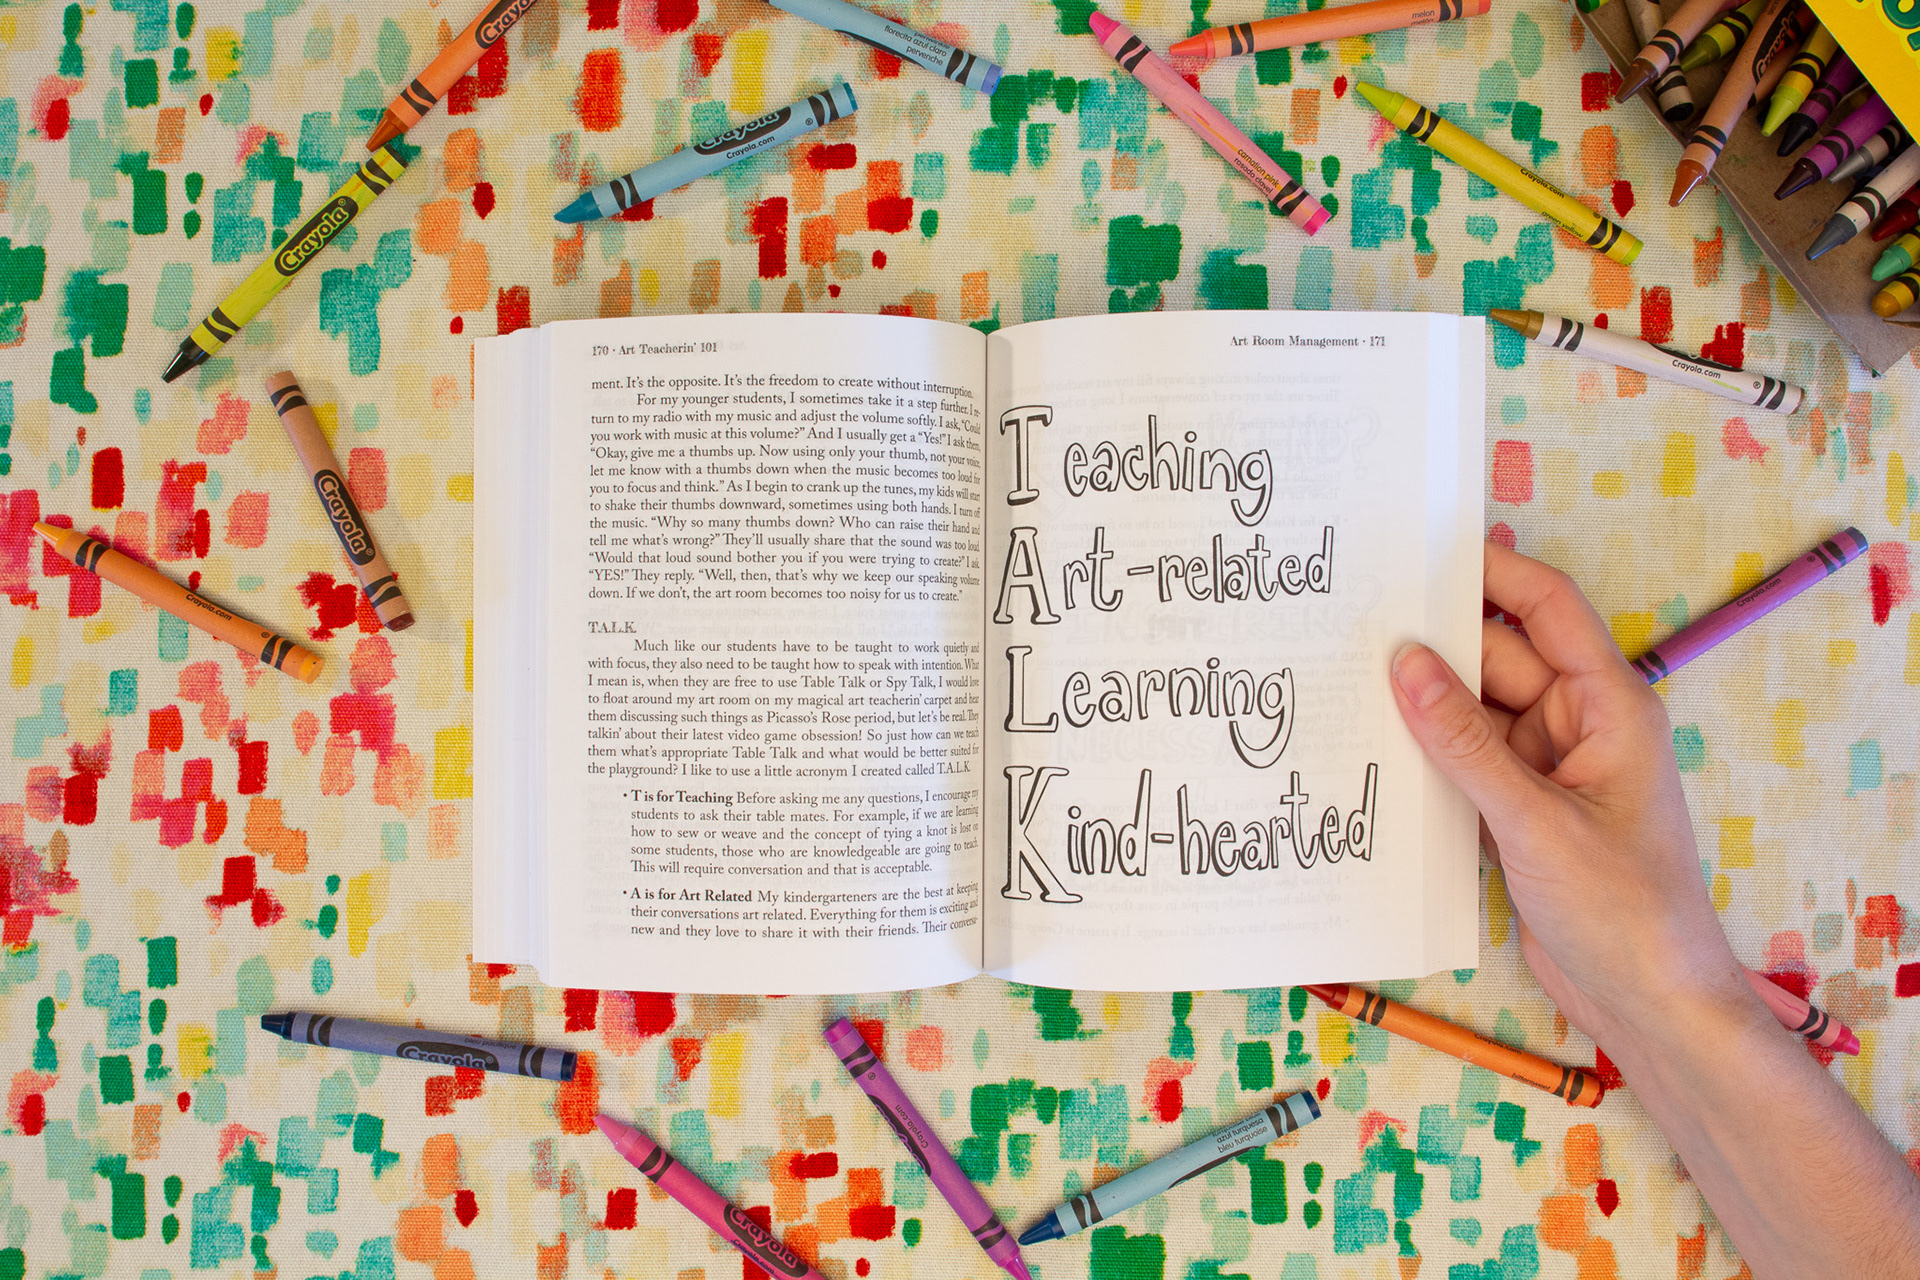 Crayola
florecita azul claro
pervenche
melon
Crayola
Crayola.com
carnation pink
rosado clavel
Crayola.com
green yellow
Crayola
Crayola.com
Crayola
Crayola.com
Crayola.com
170 · Art Teacherin' 101
ment. It's the opposite. It's the freedom to create without interruption.
For my younger students, I sometimes take it a step further. I re-
turn to my radio with my music and adjust the volume softly. I ask, "Could
you work with music at this volume?" And I usually get a "Yes!" I ask them,
"Okay, give me a thumbs up. Now using only your thumb, not your voice,
let me know with a thumbs down when the music becomes too loud for
you to focus and think." As I begin to crank up the tunes, my kids will start
to shake their thumbs downward, sometimes using both hands. I turn off
the music. "Why so many thumbs down? Who can raise their hand and
tell me what's wrong?" They'll usually share that the sound was too loud.
"Would that loud sound bother you if you were trying to create?" I ask.
"YES!" They reply. "Well, then, that's why we keep our speaking volume
down. If we don't, the art room becomes too noisy for us to create."
T.A.L.K.
Much like our students have to be taught to work quietly and
with focus, they also need to be taught how to speak with intention. What
I mean is, when they are free to use Table Talk or Spy Talk, I would love
to float around my art room on my magical art teacherin' carpet and hear
them discussing such things as Picasso's Rose period, but let's be real. They
talkin' about their latest video game obsession! So just how can we teach
them what's appropriate Table Talk and what would be better suited for
the playground? I like to use a little acronym I created called T.A.L.K.
• T is for Teaching Before asking me any questions, I encourage my
students to ask their table mates. For example, if we are learning
how to sew or weave and the concept of tying a knot is lost on
some students, those who are knowledgeable are going to teach.
This will require conversation and that is acceptable.
• A is for Art Related My kindergarteners are the best at keeping
their conversations art related. Everything for them is exciting and
new and they love to share it with their friends. Their conversa-
Art Room Management · 171
Teaching
Art-related
Learning
Kind-hearted
Crayola
Crayola.com
azul turquesa
bleu turquoise
Crayola